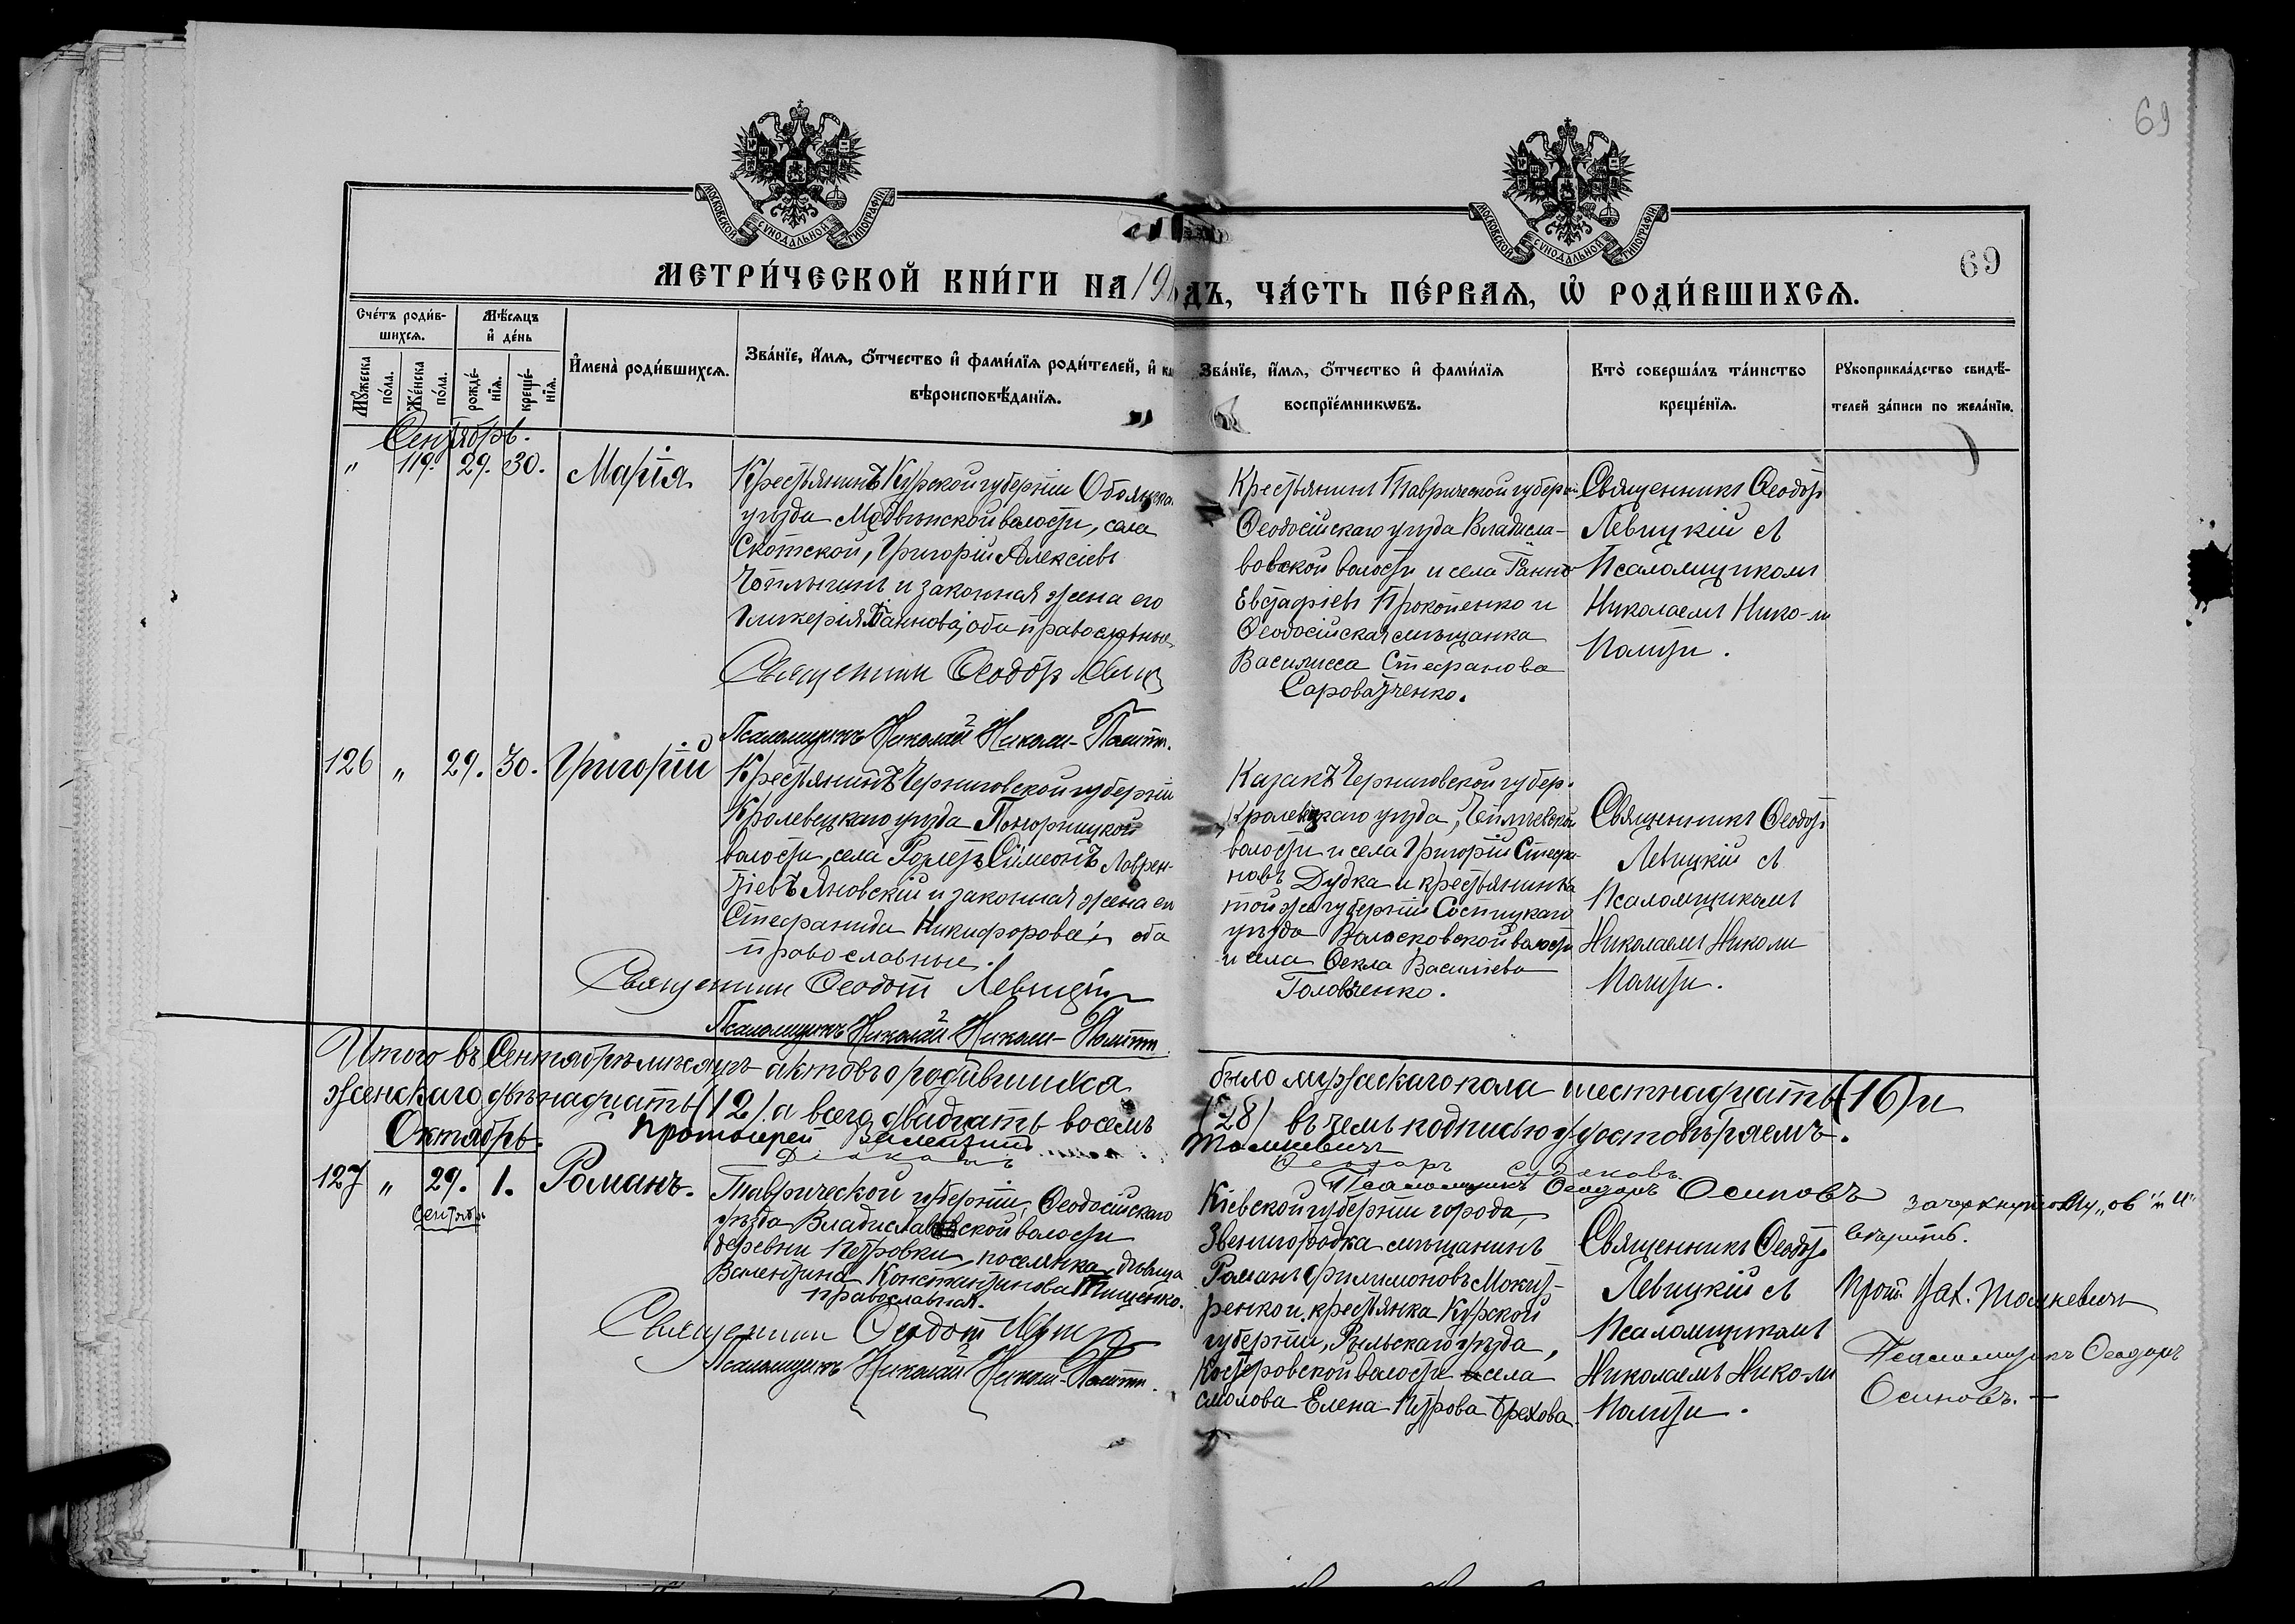 69
МОСКОВСКОЙ СУНОДАЛЬНОЙ ТИПОГРАФІИ
МОСКОВСКОЙ СУНОДАЛЬНОЙ ТИПОГРАФІИ
69
МЕТРИ́ЧЕСКОЙ КНИ́ГИ НА 19
ДЪ, ЧА́СТЬ ПЕ́РВАѦ, Ѡ҆ РОДИ́ВШИХСѦ.
Сче́тъ роди́в-
шихсѧ.
Мѣ́сѧцъ
и҆ де́нь
Мꙋ́жеска по́ла.
Же́нска по́ла.
рожде́-нїѧ.
креще́-нїѧ.
И҆мена̀ роди́вшихсѧ.
Зва́нїе, и҆́мѧ, ѻ҆́тчество и҆ фами́лїѧ роди́телей, и҆
вѣроисповѣ́данїѧ.
Зва́нїе, и҆́мѧ, ѻ҆́тчество и҆ фами́лїѧ
воспрїе́мникѡвъ.
Кто̀ соверша́лъ та́инство
креще́нїѧ.
Рꙋкоприкла́дство свидѣ́-
телей за́писи по жела́нїю.
Сентябрь.
" 119. 29. 30. Марія
Крестьянинъ Курской губерніи Обоянска.
уѣзда Медвѣнской волости, села
Скотской, Григорій Алексіевъ
и законная жена его
Гликерія Іаннова, оба православные
Священник Ѳеодор Левиц
Псаломщикъ Николай Николи-Полити.
Крестьянинъ Таврической губерн
Ѳеодосійскаго уѣзда Владисла-
вовской волости и села
Евстафіевъ Прокопенко и
Ѳеодосійская мѣщанка
Василисса Стефанова
Священникъ Ѳеодор
Левицкій съ
Псаломщикомъ
Николаемъ Нико-ли
Полити.
126 " 29. 30. Григорій
Крестьянинъ Черниговской губерніи
Кролевецкаго уѣзда Понорницкой
волости, села Розлеты Сѵмеонъ Лаврен-
тіевъ Яновскій и законная жена ег
Стефанида Никифорова; оба
православные.
Священник Ѳеодот Левицкій
Псаломщикъ Николай Николи-Полити
Казакъ Черниговской губер.
Кролевецкаго уѣзда,
волости и села Григорій Стефа-
новъ Дудка и крестьянинка
той же губерніи Сосницкаго
уѣзда Волосковской волости
и села Ѳекла Василіева
Головченко.
Священникъ Ѳеодор
Левицкій съ
Псаломщикомъ
Николаемъ Николи
Полити.
Итого въ Сентябрѣ мѣсяцѣ актовъ о родившихся
женскаго двѣнадцать (12) а всего двадцать восемь
было мужескаго пола шестнадцать (16) и
(28) въ чемъ подписью удостовѣряемъ.
Протоіерей
Томкевичъ
Діаконъ
Ѳеодоръ Судаковъ
Псаломщикъ Ѳеодоръ Осиповъ
Октябрь.
127 " 29. 1. Романъ.
Сентябрь
Таврической губерніи, Ѳеодосійскаго
уѣзда Владиславовской волости
деревни Петровки, поселянка, дѣвица
Валентина Константинова Тищенко.
православная.
Священник Ѳеодот
Псаломщикъ Николай Николи-Полити.
Кіевской губерніи города,
Звенигородка мѣщанинъ
Романъ Филимоновъ
ренко и крестьянка Курской
губерніи, Рыльскаго уѣзда,
волости села
Елена Петрова Брехова.
Священникъ Ѳеодор
Левицкій съ
Псаломщикомъ
Николаемъ Нико-ли
Полити.
зачеркнутому „ов" и „и"
вѣрить.
Прот. Томкевичъ
Псаломщикъ Ѳеодоръ
Осиповъ.